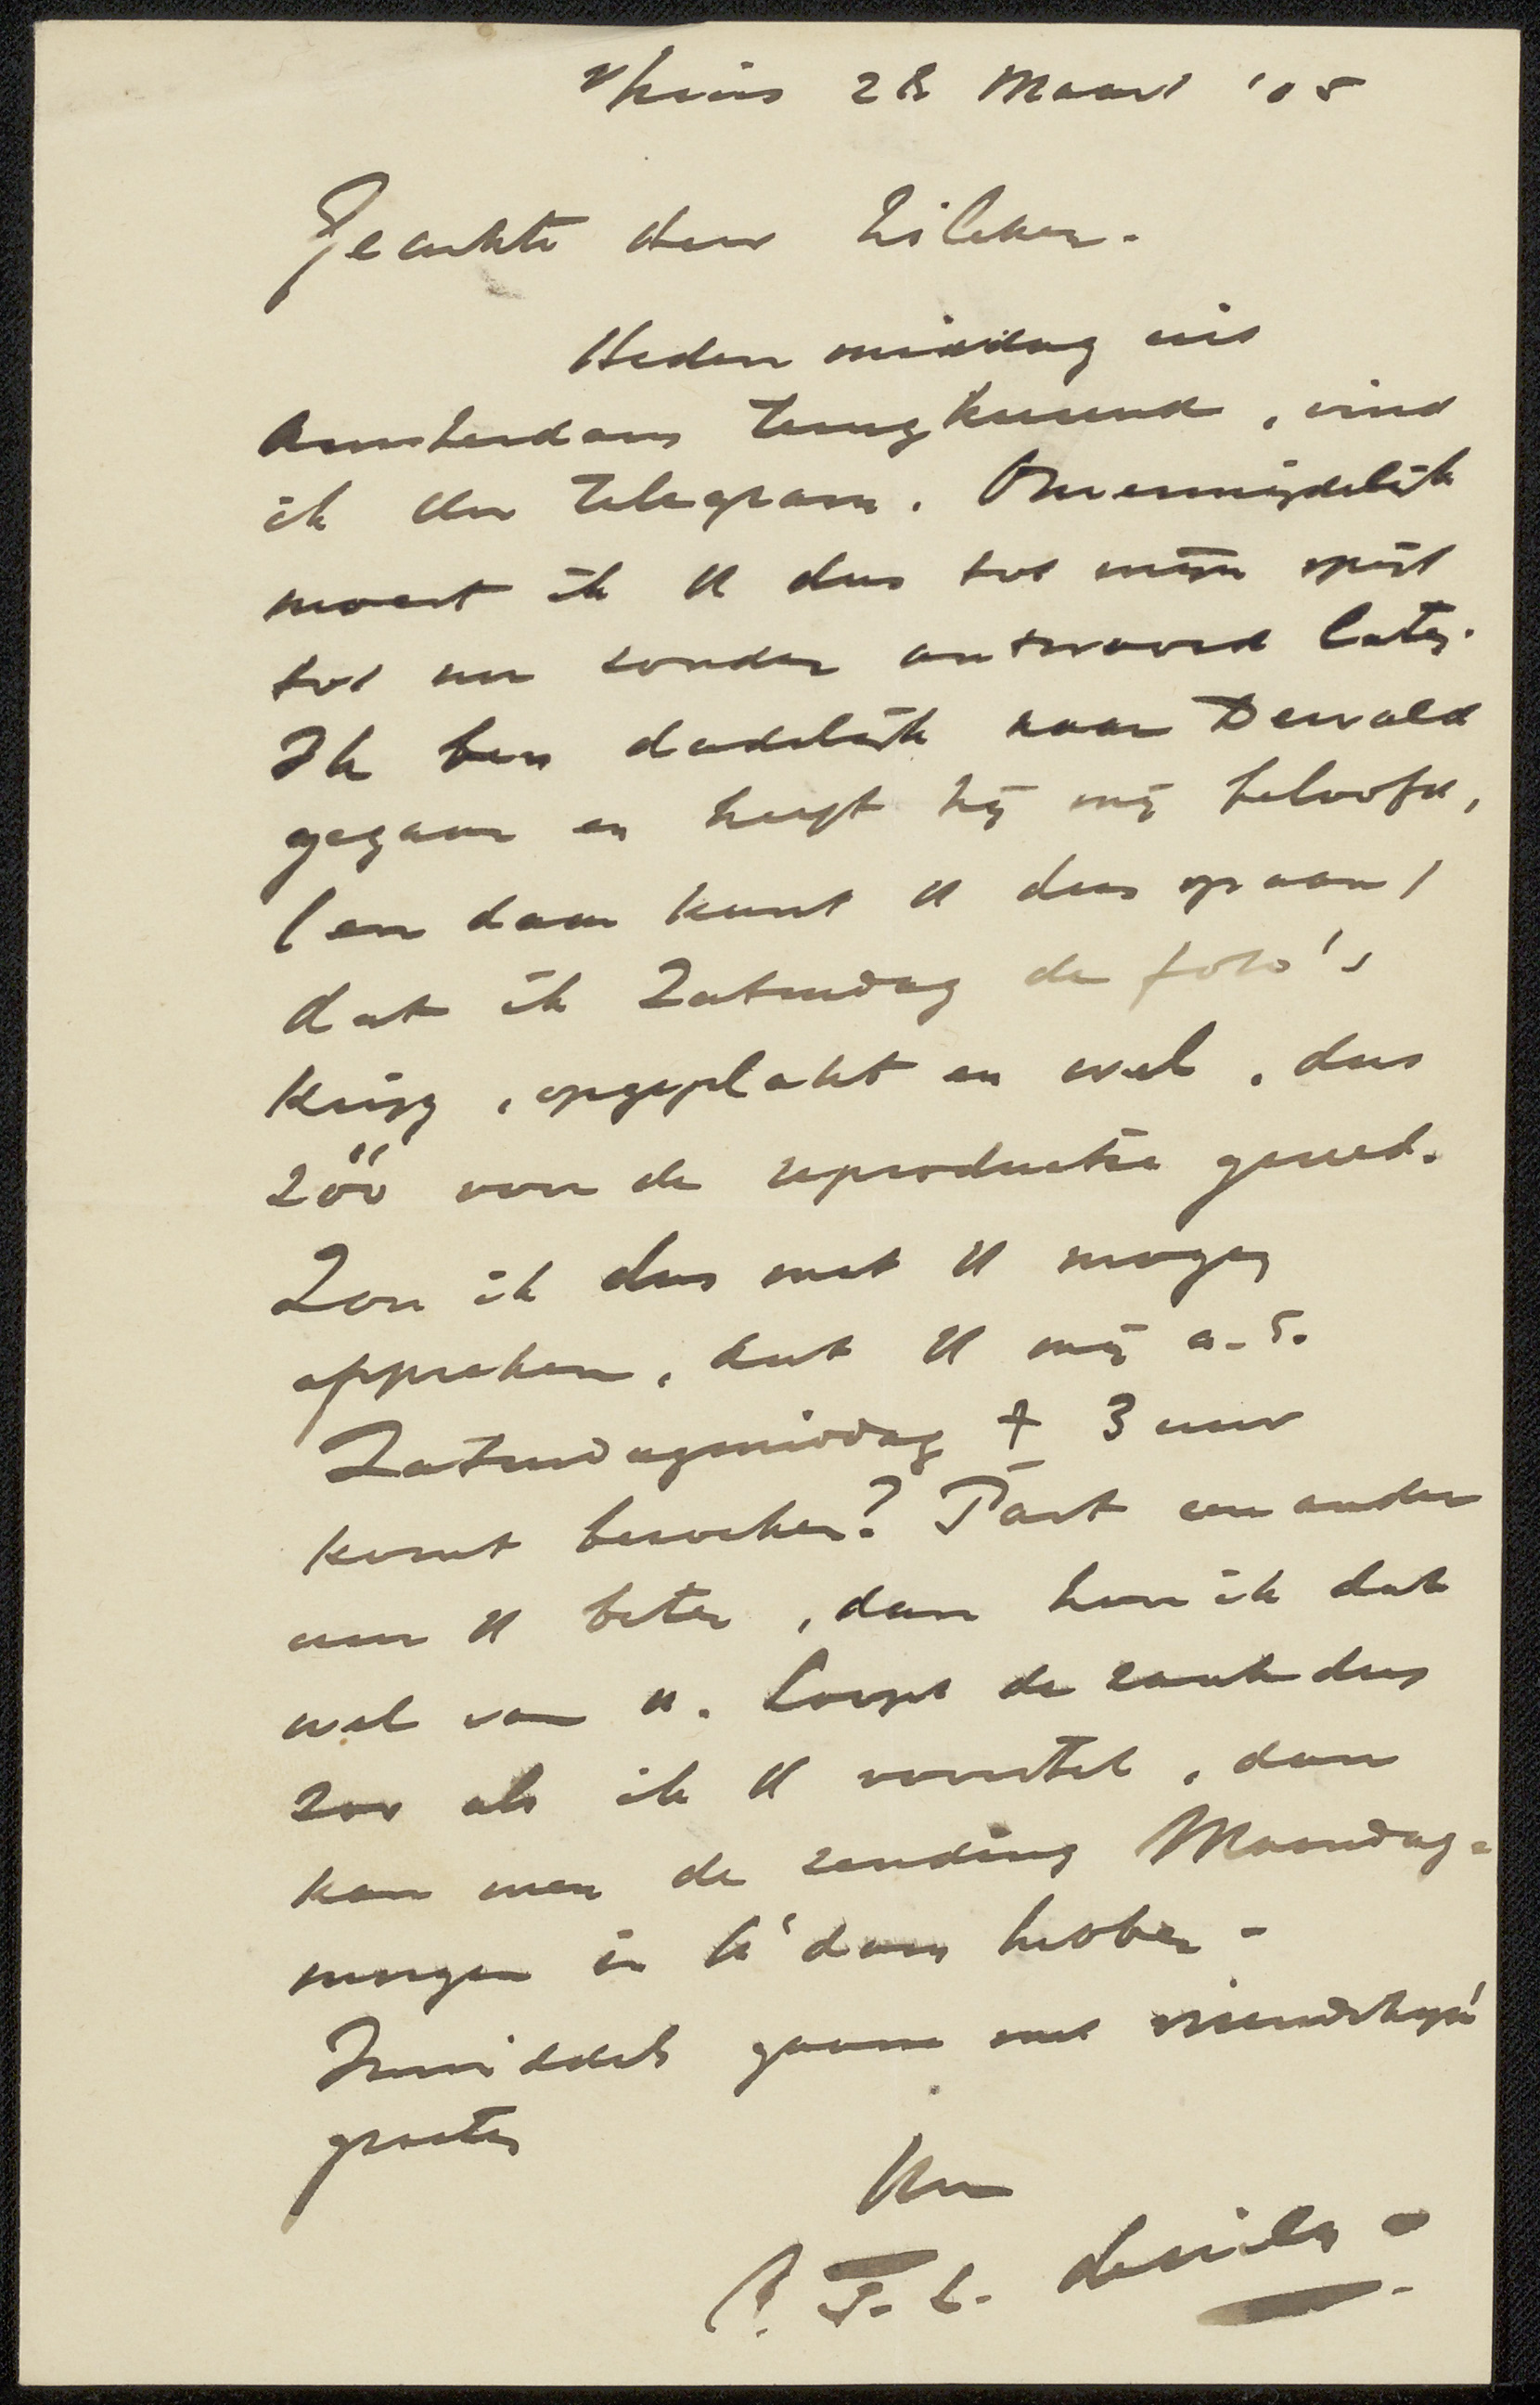 thuis 28 Maart '05
Geachte Heer Zilcken.
Heden middag uit
Amsterdam terugkeerend, vind
ik Uw telegram. Onvermijdelijk
moest ik U dus tot mijn spijt
tot nu zonder antwoord laten.
Ik ben dadelijk naar Dewald
gegaan en heeft hij mij beloofd,
(en daar kunt U dus op aan)
dat ik Zaturdag de foto's
krijg, opgeplakt en wel, dus
zóó voor de reproductie gereed.
Zou ik dus met U mogen
afspreken, dat U mij a.s.
Zaturdagmiddag ± 3 uur
komt bezoeken? Past een ander
uur U beter, dan hoor ik dat
wel van U. Loopt de zaak dus
zoo als ik U voorstel, dan
kan men de zending Maandag-
morgen in A'dam hebben -
Inmiddels gaarne met vriendschapp.
groeten
Uw
P. T. L.